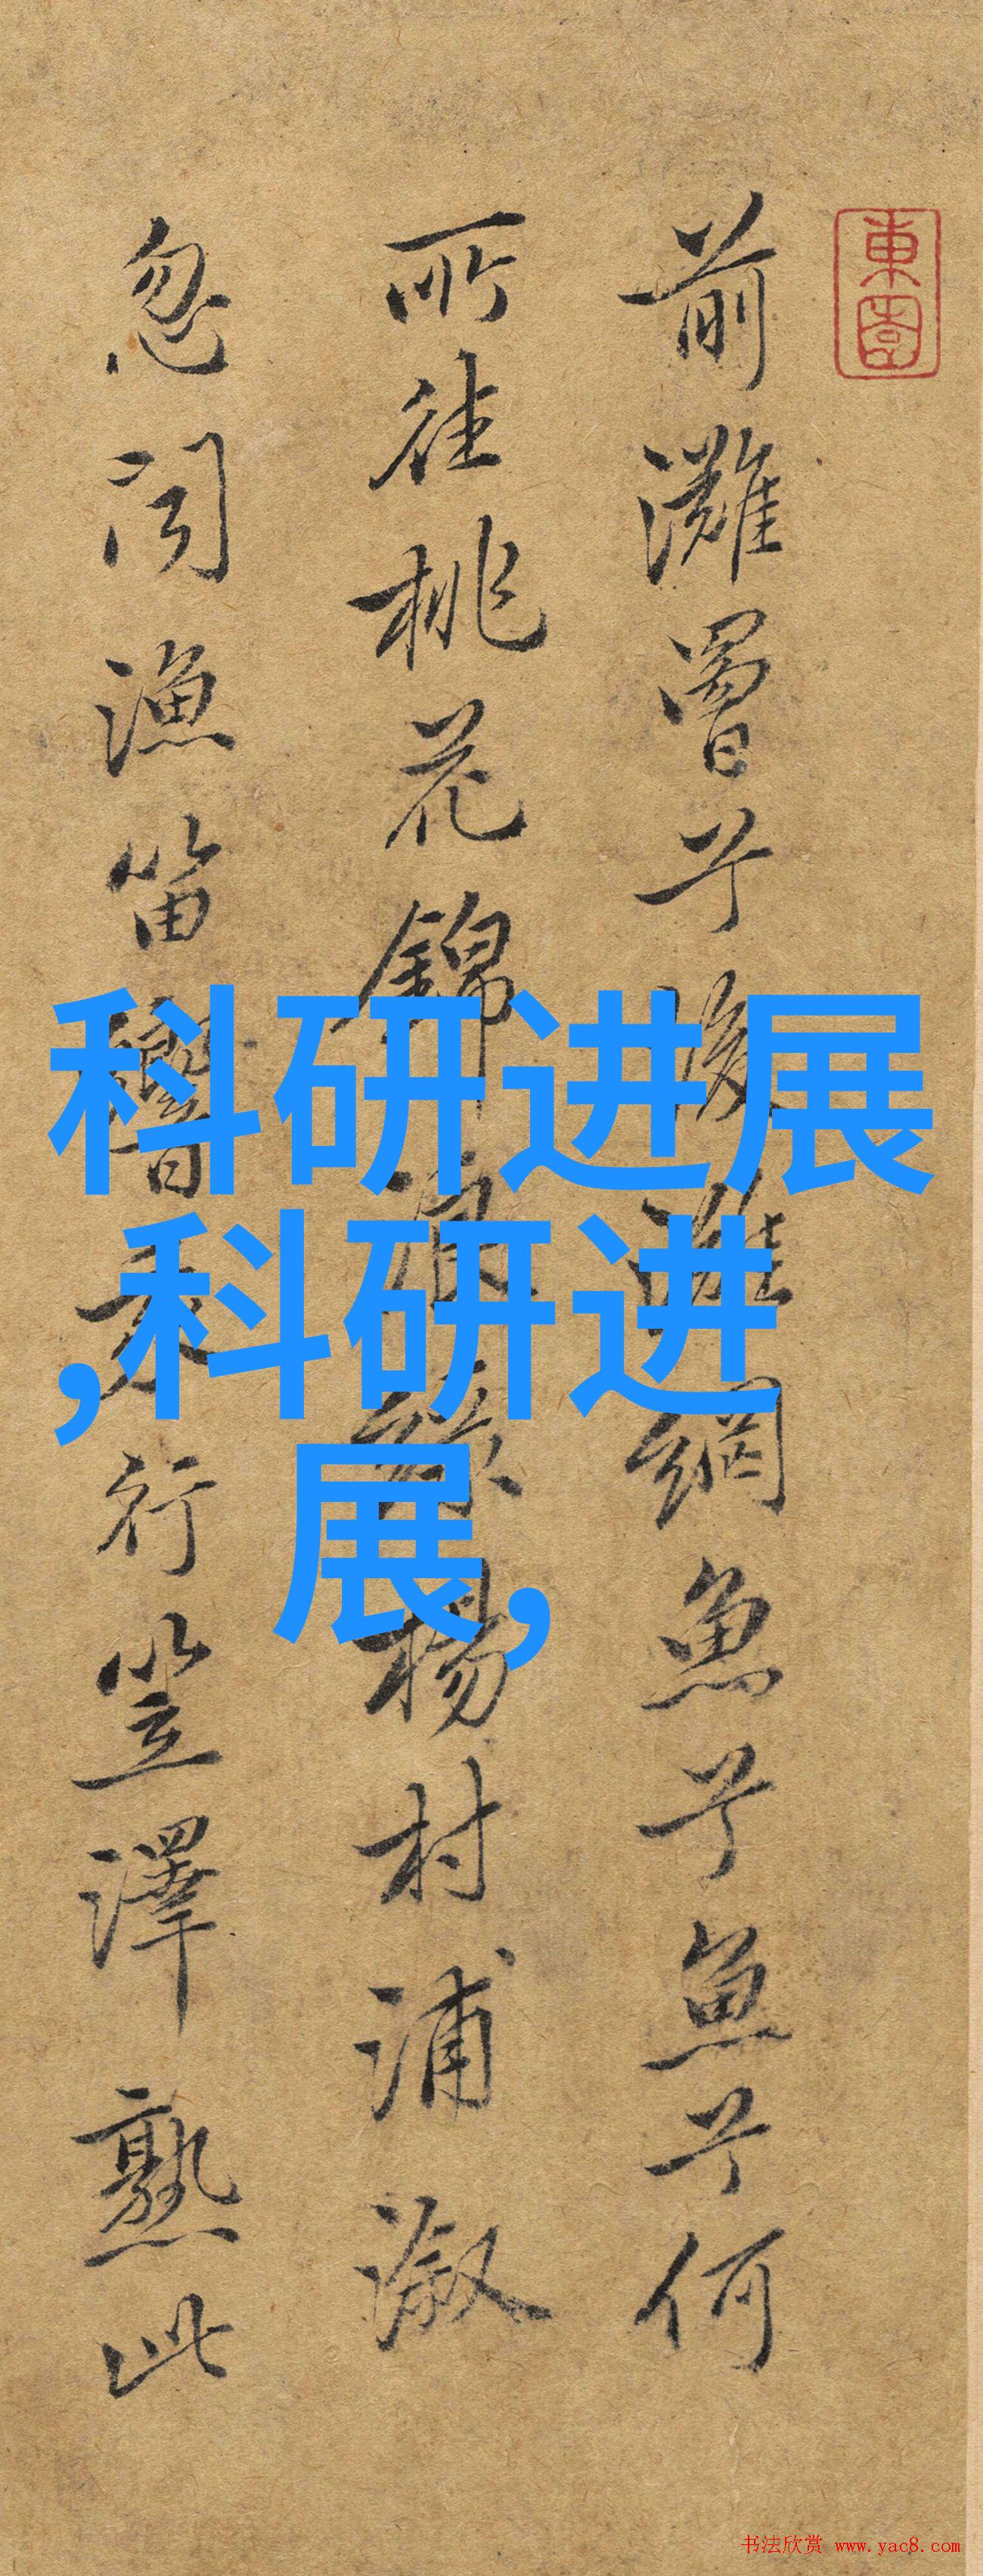 東園
前灘罾兮後灘網魚兮魚兮何
所往桃花錦浪綠楊村浦溆
忽聞漁笛響行笠澤熟此
科研进展
,科研进
展,
书法欣赏 www.yac8.com